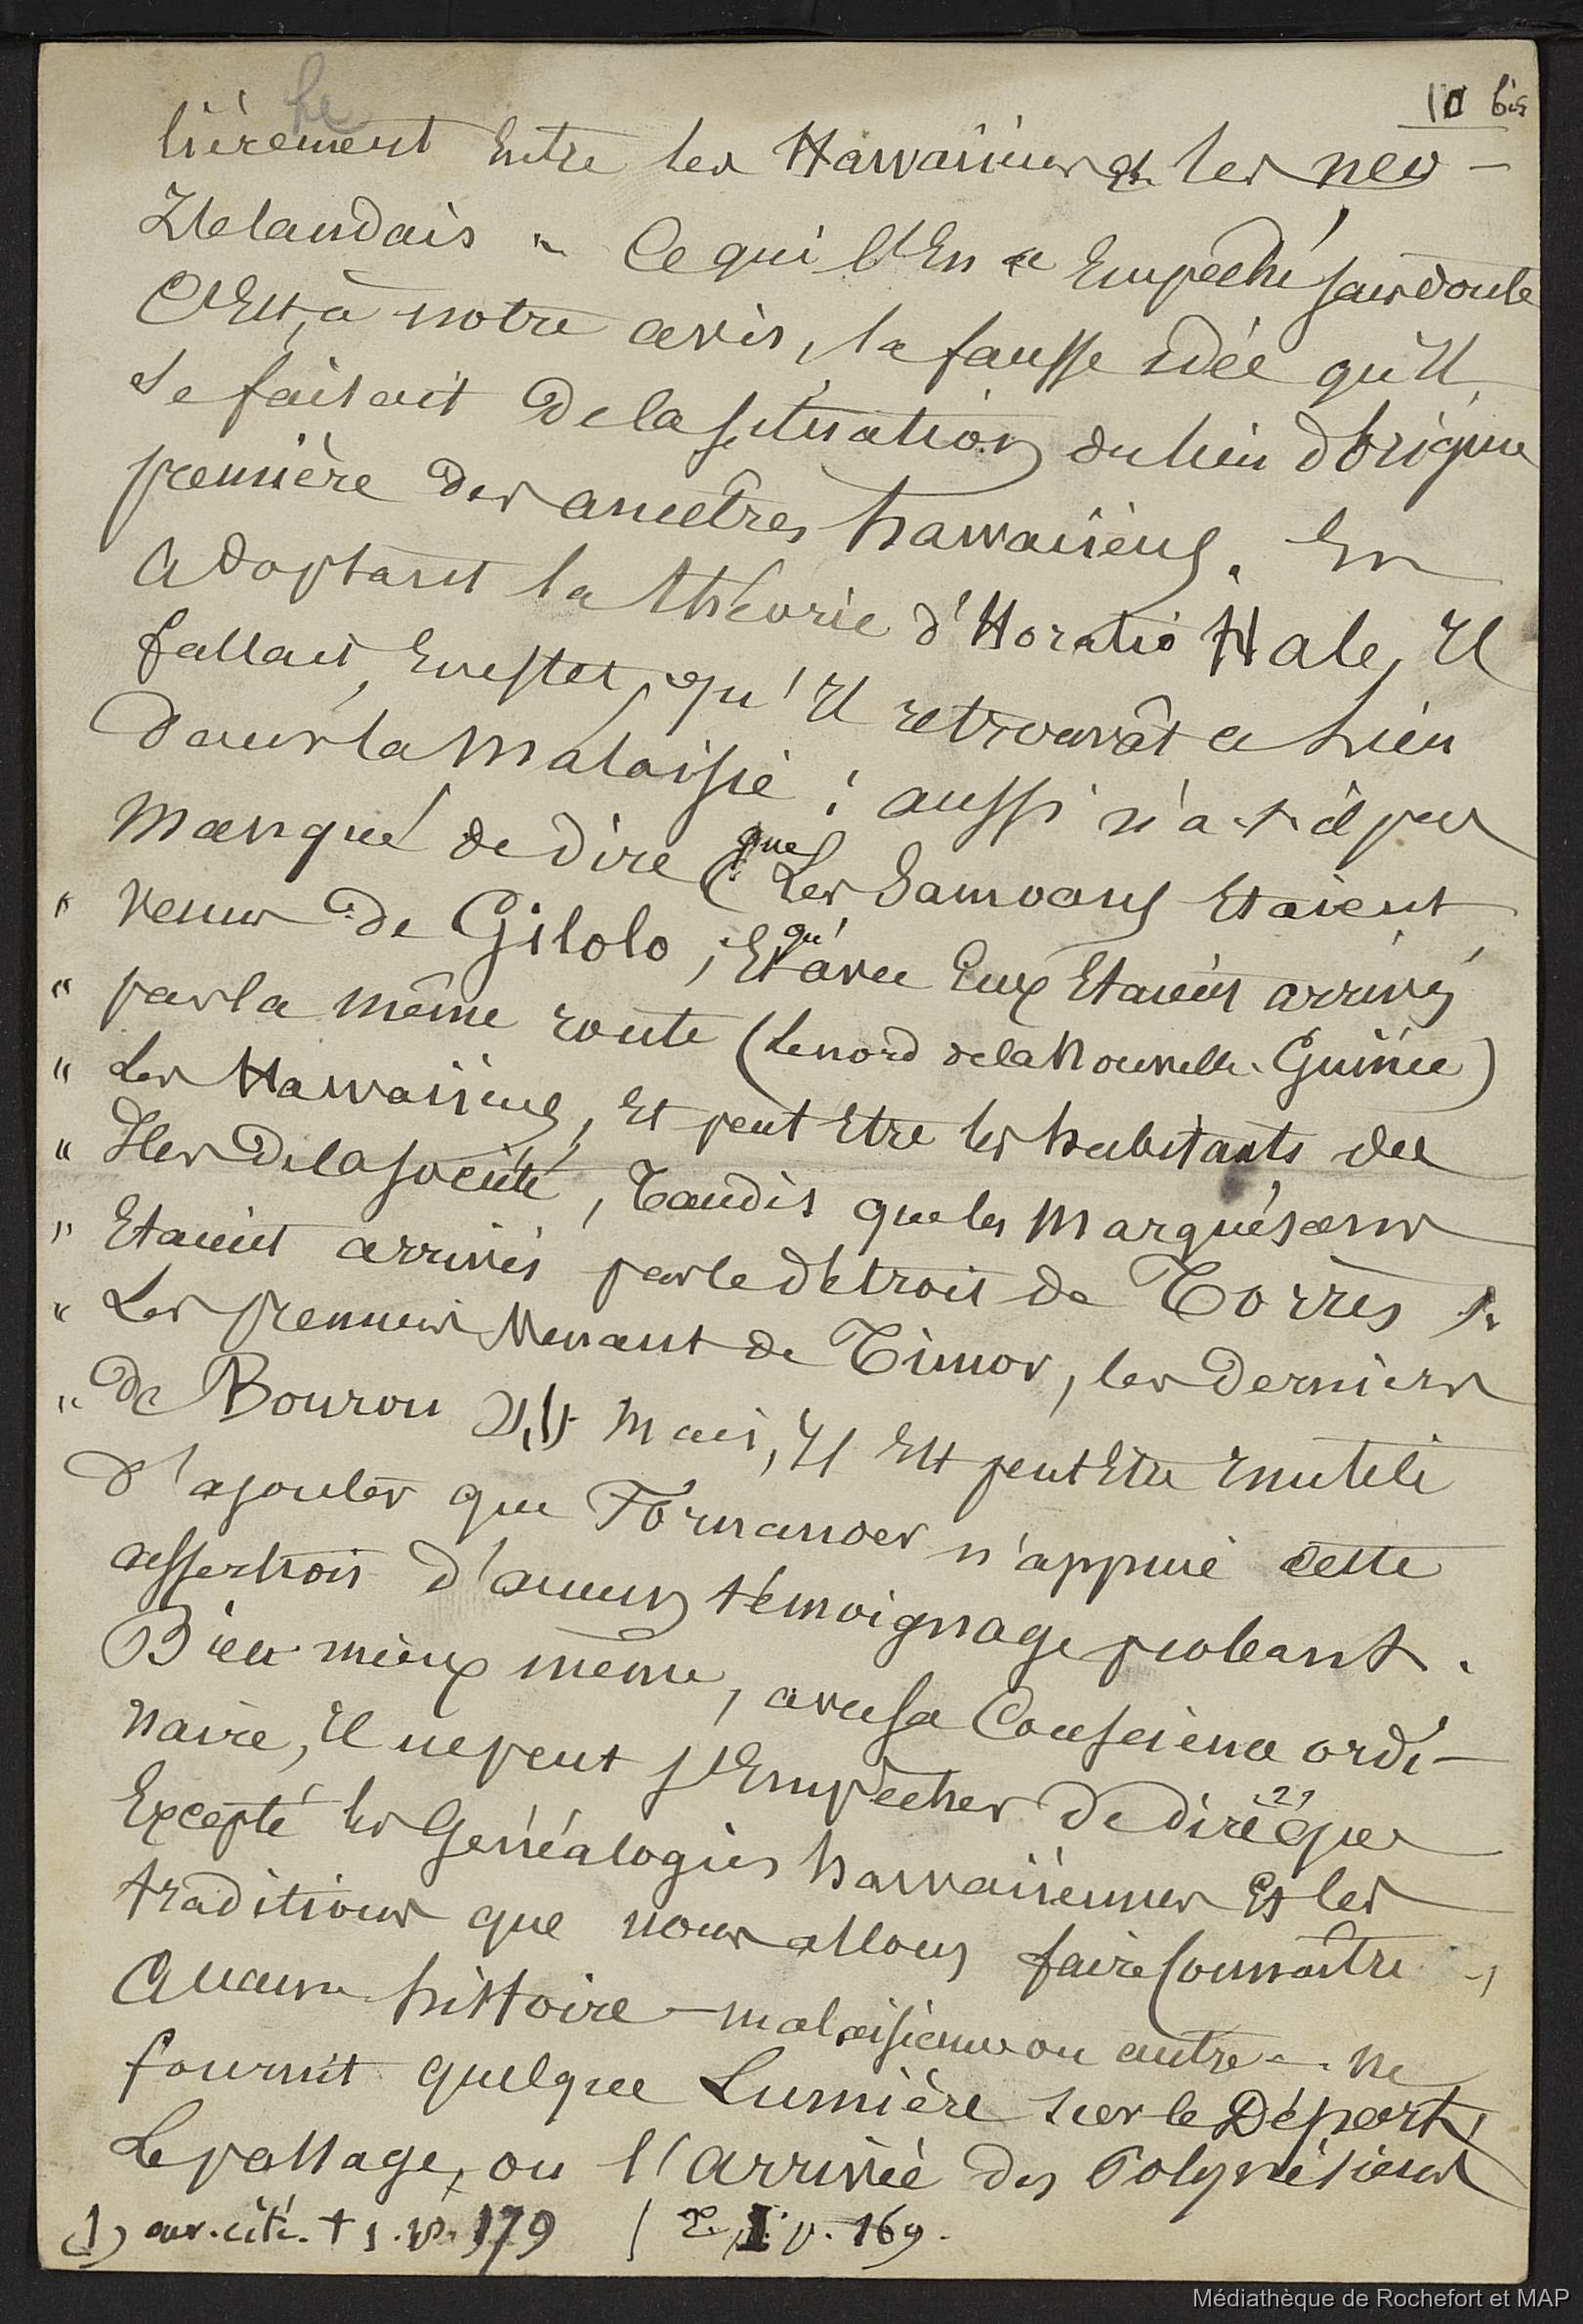 10 bis
lièrement Entre les Hawaiiens et les neo-
Zelandais. Ce qui l'En a Empêché sans doute
C'Est, à notre avis, la fausse idée qu'Il
se faisait de la situation du lieu d'origine
première des ancêtres hawaiiens. En
adoptant la théorie d'Horatio Hale, Il
fallait, En effet, qu'Il retrouvât ce lieu
dans la Malaisie ; aussi n'a-t-il pas
manqué de dire que " Les Samoans Etaient
" venus de Gilolo ; Et qu'avec Eux Etaient arrivés
" par la même route (le nord de la Nouvelle-Guinée)
" Les Hawaiiens, Et peut Etre les habitants des
" Iles de la Société, Tandis que les Marquésans
" Etaient arrivés par le détroit de Torrès
" Les premiers Venant de Timor, les derniers
" de Bourou (1) Mais, Il Est peut Etre Inutile
d'ajouter que Fornander n'appuie cette
assertion d'aucun témoignage probant.
Bien mieux même, avec sa Conscience ordi-
naire, Il ne peut s'Empêcher de dire que
Excepté les Généalogies hawaiiennes Et les
traditions que nous allons faire Connaître,
Aucune histoire - malaisienne ou autre - ne
fournit quelque Lumière sur le Départ,
Le passage, ou l'arrivée des Polynésiens
(1) ouv. cité. t 1. p. 179 / T. I p. 169.
Médiathèque de Rochefort et MAP